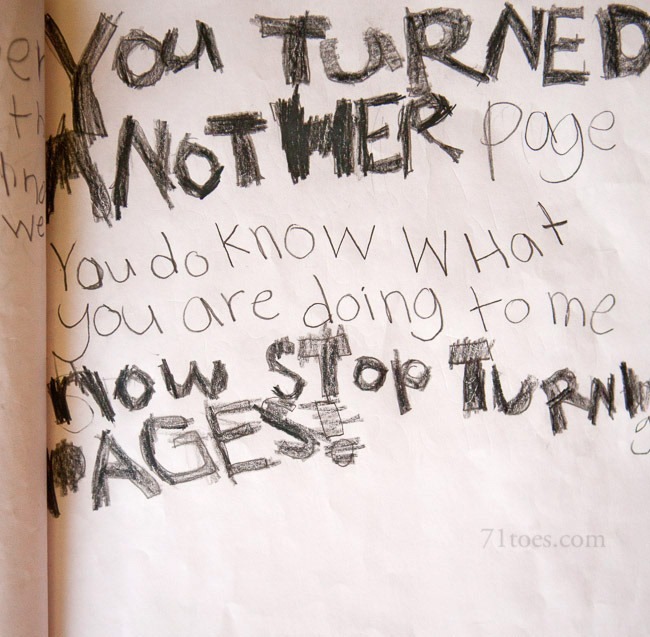 You TURNED
ANOTHER page
You do know WHat
you are doing to me
Now STop TURNIN
g
PAGES!
71toes.com